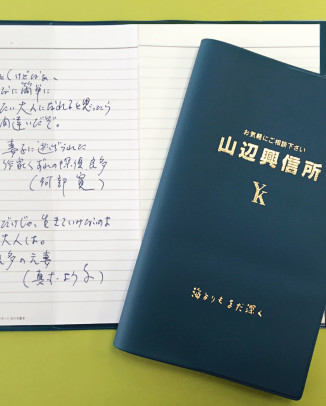 そんなに簡単に
なりたい大人になれると思ったら
間違いだぞ。
妻子に逃げられた
作家くずれの探偵 良多
(阿部寛)
だけじゃ、生きていけないのよ
大人は。
良多の元妻
(真木よう子)
お気軽にご相談下さい
山辺興信所
YK
海よりもまだ深く